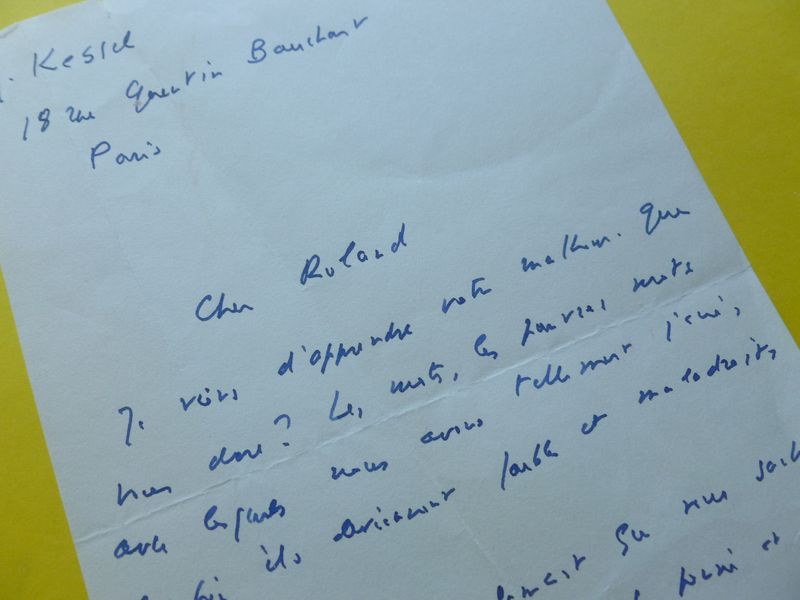 Kessel
18 rue Quentin Bauchart
Paris
Cher Roland
Je viens d'apprendre votre malheur. Que
vous dire? Les mots, les pauvres mots
avec lesquels nous avons tellement joué,
ils deviennent faibles et maladroits
que vous
et